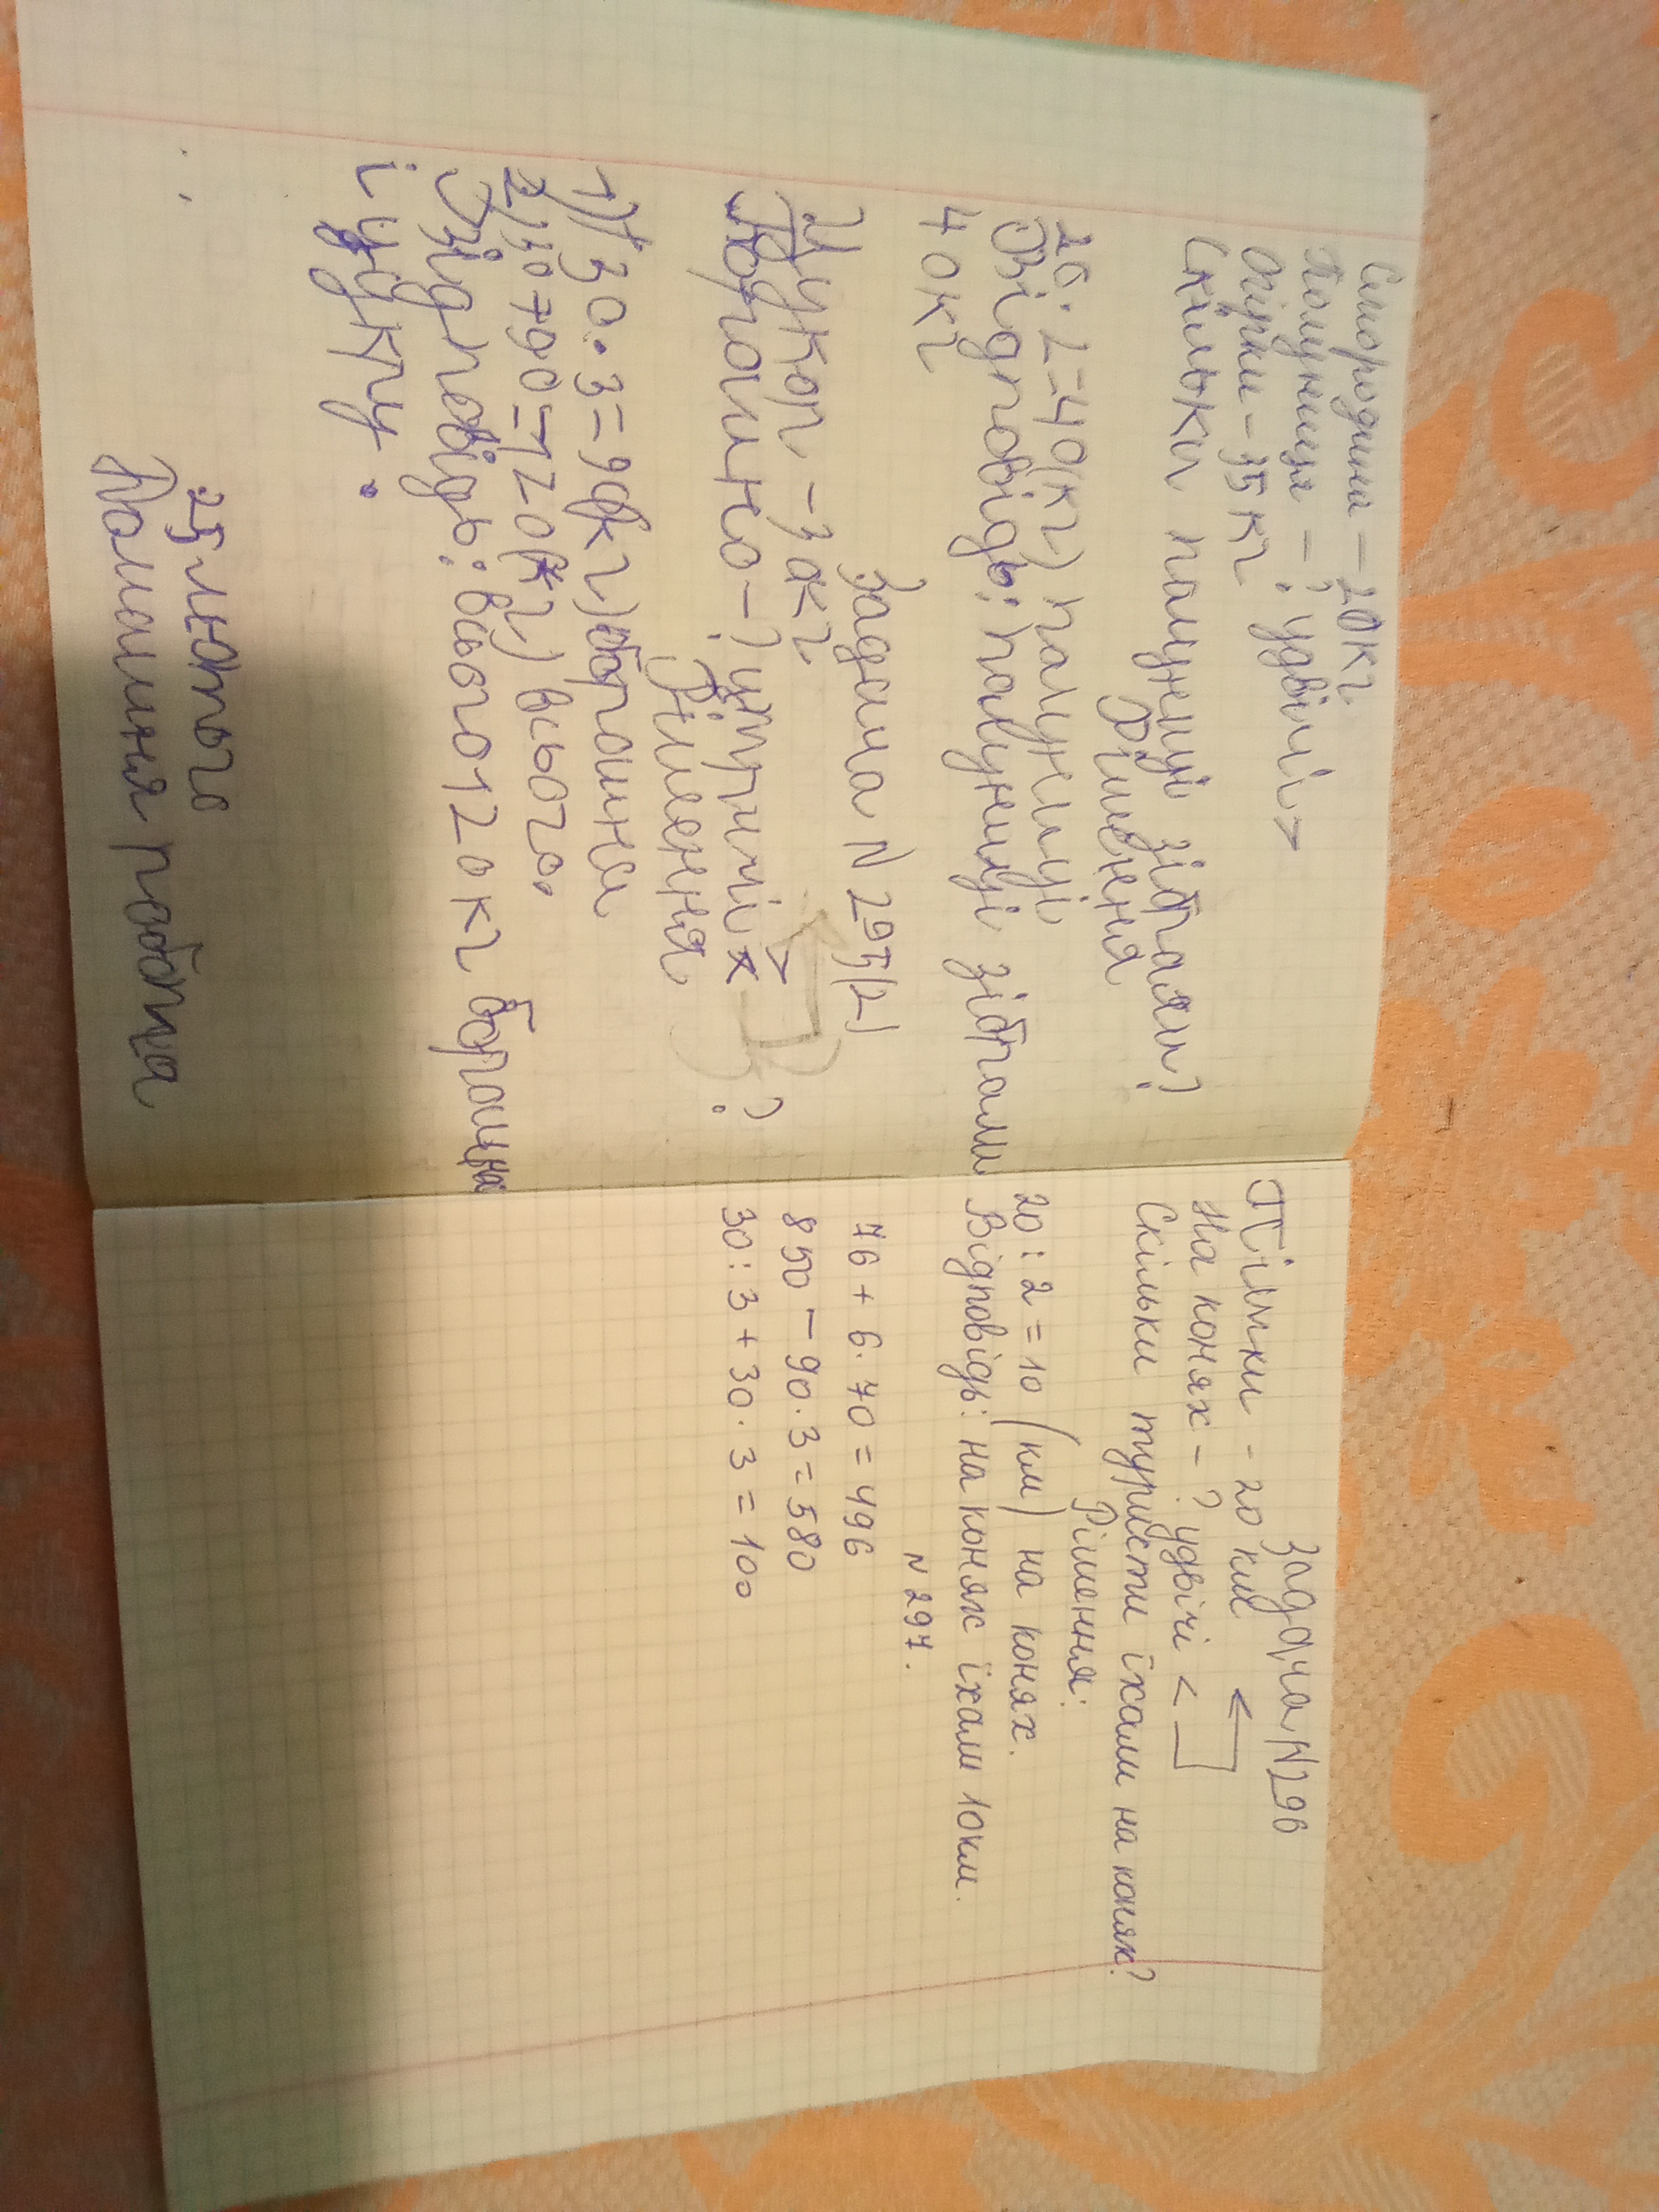 Смородина - 20кг
Полуниця - ? удвічі >
Огірки - 35 кг
Скільки полуниці зібрали?
Рішення
20 · 2 = 40(кг) полуниці
Відповідь: полуниці зібрали
40кг
Задача N 295(2)
Цукор - 30кг
Борошно - ? утричі > ?
Рішення
1) 30 · 3 = 90(кг) борошна
2) 30+90=120(кг) всього.
Відповідь: всього 120кг борошна
і цукру.
25 лютого
Домашня робота
Задача N296
Пішки - 20 км
На конях - ? удвічі <
Скільки туристи їхали на конях?
Рішення:
20 : 2 = 10 (км) на конях.
Відповідь: на конях їхали 10км.
N 297.
76 + 6 · 70 = 496
850 - 90 · 3 = 580
30 : 3 + 30 · 3 = 100